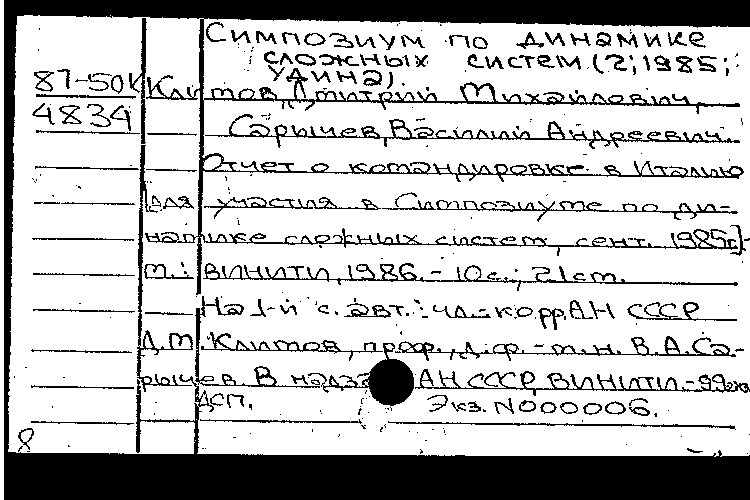 Симпозиум по динамике
сложных систем (2; 1985;
Удина).
87-50К Климов, Дмитрий Михайлович,
4834
Сарычев, Василий Андреевич.
Отчет о командировке в Италию
[для участия в Симпозиуме по ди-
намике сложных систем, сент. 1985г.]-
М.: ВИНИТИ, 1986. - 10 с.; 21 см.
На 1-й с. авт.: чл.-корр. АН СССР
Д.М. Климов, проф., д.ф.-м.н. В.А. Са-
рычев. В надзаг АН СССР, ВИНИТИ. - 99 экз
ДСП. Экз. N000006.
8